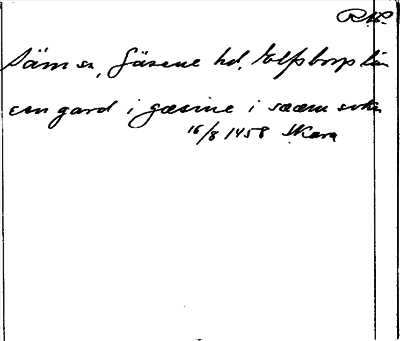 R.A.P.
Säm sn, Gäsene hd, Elfsborgs län
een gard i gæsine i sææm sokn
16/8 1458 Skara